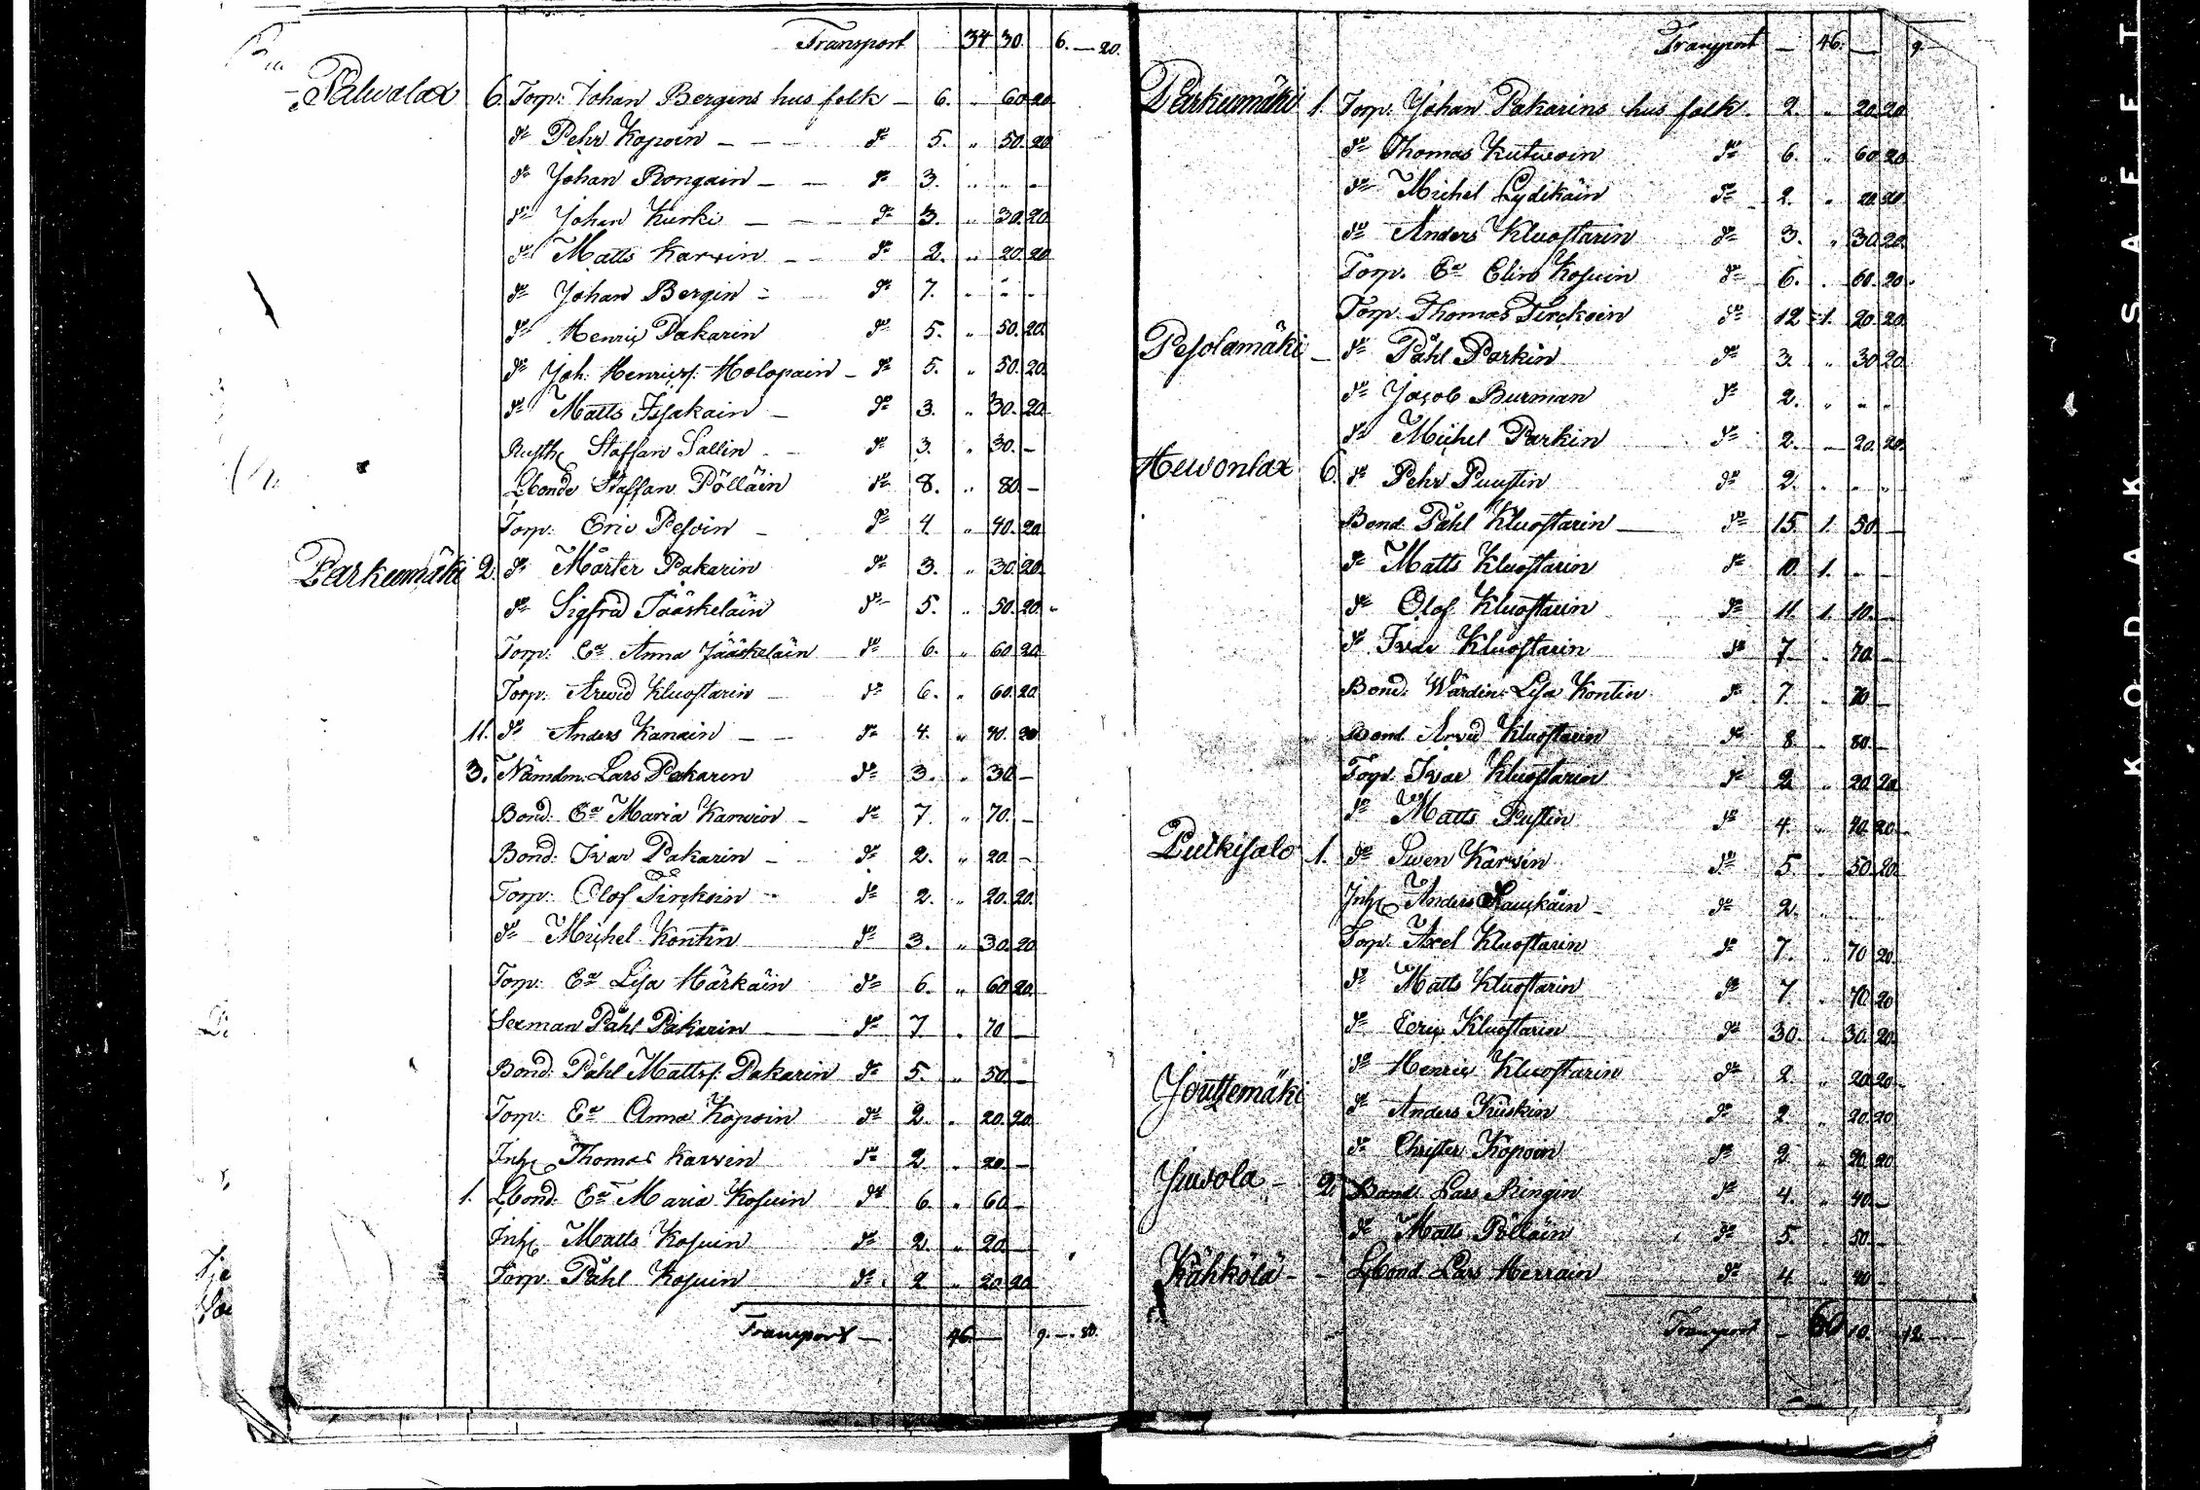 Transport 34 30. 6. — 20.
Pålwalax 6. Torp: Johan Bergins hus folk — 6. " 60 20
dº Pehr Kopoin — — — dº 5. " 50. 20
dº Johan Rongain — — dº 3. " " —
dº Johan Kurki — — — dº 3. " 30. 20.
dº Matts Karvin — — dº 2. " 20. 20
dº Johan Bergin dº 7. " " "
dº Henric Pakarin dº 5. " 50. 20.
dº Joh: Henrics: Holopain — dº 5. " 50. 20.
dº Matts Issakain — dº 3. " 30. 20.
Rusth. Staffan Sallin dº 3. " 30. —
Lbonde Staffan Pölläin dº 8. " 80 —
Torp: Eric Pesoin — dº 4. " 40. 20.
Parkumäki 2. dº Mårten Pakarin dº 3. " 30. 20.
dº Sigfrid Jääskeläin dº 5. " 50. 20.
Torp: Ea Anna Jääskeläin dº 6. " 60 20
Torp: Arvid Kluostarin — dº 6. " 60. 20
11. dº Anders Kanain — — dº 4. " 40. 20
3. Nämdm: Lars Pakarin dº 3. " 30 —
Bond: Ea Maria Karvin — dº 7. " 70. —
Bond: Ivar Pakarin — dº 2. " 20. —
Torp: Olof Tirckoin dº 2. " 20. 20.
dº Michel Kontin dº 3. " 30. 20
Torp: Ea Lisa Härkäin dº 6. " 60 20.
Sexman Påhl Pakarin — dº 7 " 70 —
Bond: Påhl Matts: Pakarin dº 5. " 50 —
Torp: Ea Anna Kopoin dº 2. " 20. 20
Inh. Thomas Karvin dº 2. " 20. —
1. Lbond: Ea Maria Kosuin dº 6. " 60 —
Inh. Matts Kosuin dº 2. " 20. —
Torp: Påhl Kosuin dº 2 " 20. 20
Transport — 46. — 9. —
Transport — 46. — 9
Parkumäki 1. Torp: Johan Pakarins hus folk. 2. " 20 20
dº Thomas Kutvoin dº 6. " 60 20
dº Michel Lydikäin dº 2. " 20. 20
dº Anders Kluostarin dº 3. " 30 20.
Torp. Ea Elin Kosuin dº 6. " 60. 20.
Torp Thomas Tirckoin dº 12 1. 20. 20.
Pesolamäki — dº Påhl Parkin dº 3. " 30 20.
dº Jacob Burman dº 2. " " "
dº Michel Parkin dº 2. — 20. 20.
Hewonlax 6. dº Pehr Puustin dº 2. " " "
Bond. Påhl Kluostarin — dº 15. 1. 50. —
dº Matts Kluostarin dº 10. 1. — —
dº Olof Kluostarin dº 11. 1. 10. —
dº Ivar Kluostarin dº 7 " 70. —
Bond: Wärdin: Lisa Kontin dº 7. " 70 —
Bond. Arvid Kluostarin dº 8 " 80. —
Torp. Ivar Kluostarin dº 2 " 20 20
dº Matts Pustin dº 4. " 40. 20
Putkisalo 1. dº Swen Karvin dº 5. " 50. 20.
Inh. Anders dº 2. " "
Torp. Axel Kluostarin dº 7. " 70 20.
dº Matts Kluostarin dº 7 " 70. 20
dº Eric Kluostarin dº 30. " 30. 20.
dº Henric Kluostarin dº 2. " 20. 20
Jouttemäki dº Anders Kiiskin dº 2. " 20. 20
dº Christer Kopoin dº 2 " 20. 20
Juvola — 2. Bond. Lars Ringin dº 4. " 40 —
dº Matts Pölläin dº 5. " 50. —
Kähkölä — — Lbond Lars Herrain dº 4 " 40 —
Transport — 60 10. 12. —
KODAK SAFET